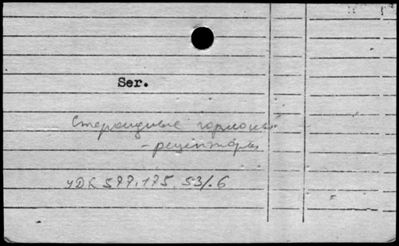 Ser.
Стероидные гормоны
- рецепторы
УДК 577.175.53/.6